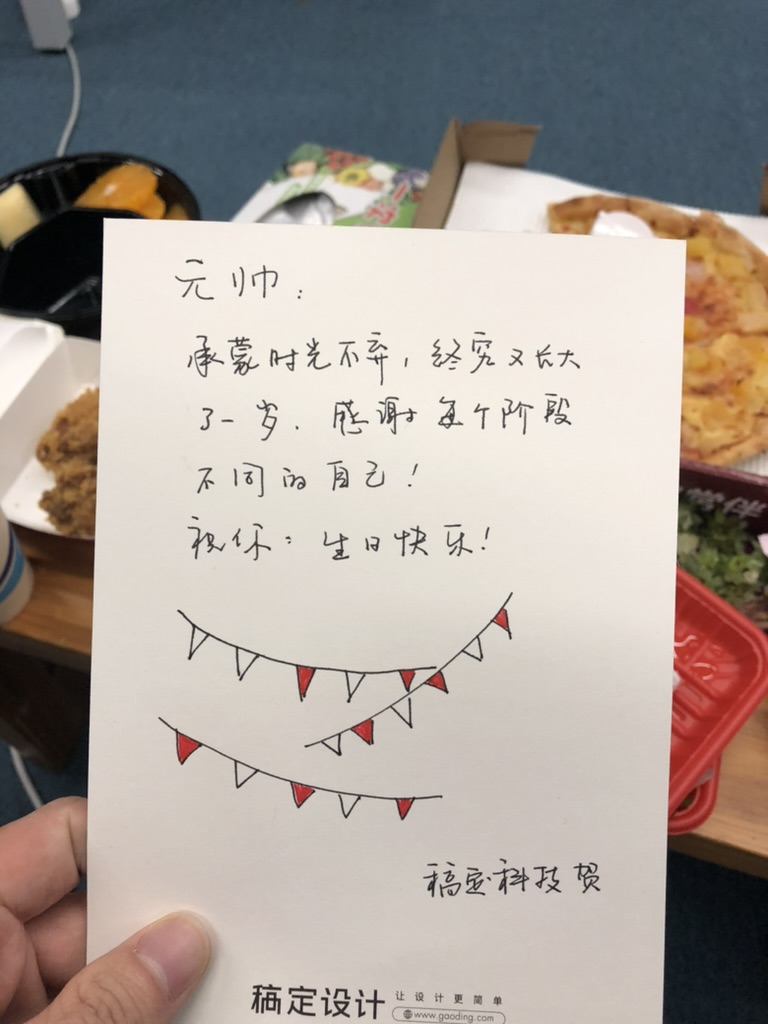 元帅：
承蒙时光不弃，终究又长大
了一岁．感谢每个阶段
不同的自己！
祝你：生日快乐！
稿定科技贺
稿定设计 让设计更简单
www.gaoding.com